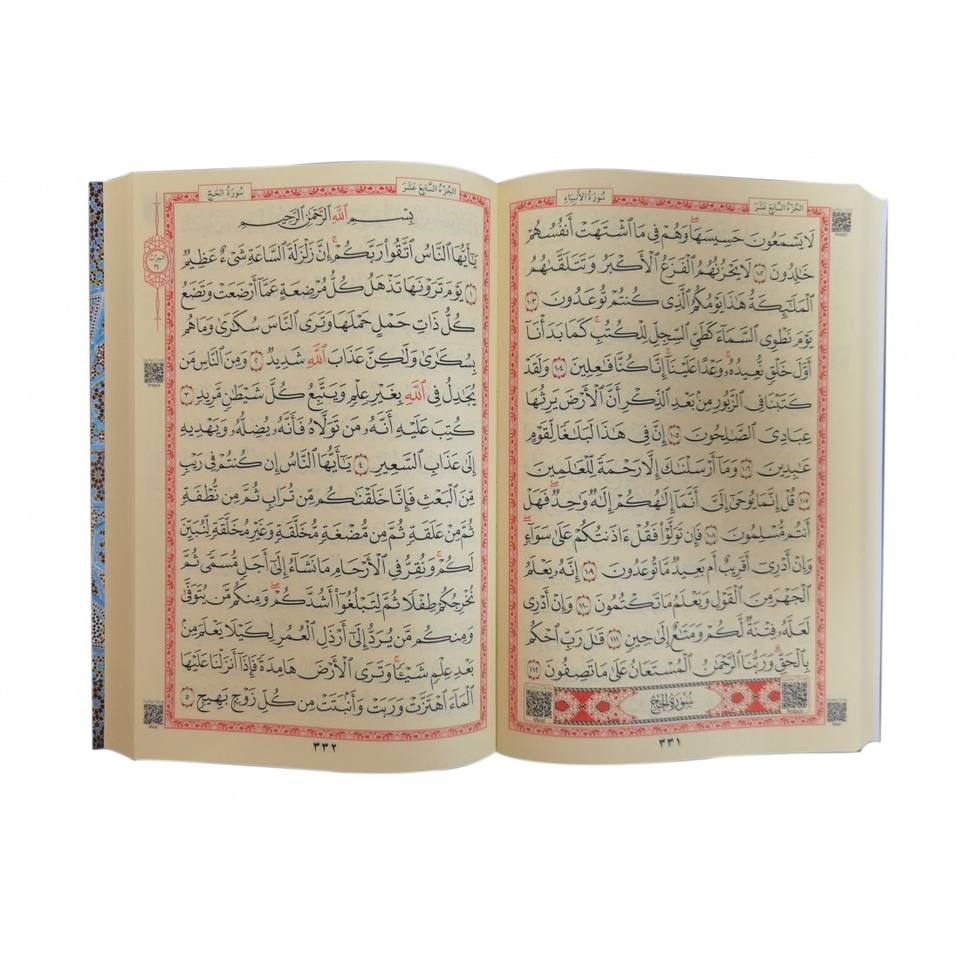 الجُزْءُ السَّابِعَ عَشَرَ
سُورَةُ الأَنبِيَاءِ
لَا يَسْمَعُونَ حَسِيسَهَا ۖ وَهُمْ فِي مَا ٱشْتَهَتْ أَنفُسُهُمْ
خَٰلِدُونَ ١٠٢ لَا يَحْزُنُهُمُ ٱلْفَزَعُ ٱلْأَكْبَرُ وَتَتَلَقَّىٰهُمُ
ٱلْمَلَٰٓئِكَةُ هَٰذَا يَوْمُكُمُ ٱلَّذِي كُنتُمْ تُوعَدُونَ ١٠٣
يَوْمَ نَطْوِي ٱلسَّمَآءَ كَطَيِّ ٱلسِّجِلِّ لِلْكُتُبِ ۚ كَمَا بَدَأْنَآ
أَوَّلَ خَلْقٍ نُّعِيدُهُۥ ۚ وَعْدًا عَلَيْنَآ ۚ إِنَّا كُنَّا فَٰعِلِينَ ١٠٤ وَلَقَدْ
كَتَبْنَا فِي ٱلزَّبُورِ مِنۢ بَعْدِ ٱلذِّكْرِ أَنَّ ٱلْأَرْضَ يَرِثُهَا
عِبَادِيَ ٱلصَّٰلِحُونَ ١٠٥ إِنَّ فِي هَٰذَا لَبَلَٰغًا لِّقَوْمٍ
عَٰبِدِينَ ١٠٦ وَمَآ أَرْسَلْنَٰكَ إِلَّا رَحْمَةً لِّلْعَٰلَمِينَ
١٠٧ قُلْ إِنَّمَا يُوحَىٰٓ إِلَيَّ أَنَّمَآ إِلَٰهُكُمْ إِلَٰهٌ وَٰحِدٌ ۖ فَهَلْ
أَنتُم مُّسْلِمُونَ ١٠٨ فَإِن تَوَلَّوْا۟ فَقُلْ ءَاذَنتُكُمْ عَلَىٰ سَوَآءٍ ۖ
وَإِنْ أَدْرِيٓ أَقَرِيبٌ أَم بَعِيدٌ مَّا تُوعَدُونَ ١٠٩ إِنَّهُۥ يَعْلَمُ
ٱلْجَهْرَ مِنَ ٱلْقَوْلِ وَيَعْلَمُ مَا تَكْتُمُونَ ١١٠ وَإِنْ أَدْرِي
لَعَلَّهُۥ فِتْنَةٌ لَّكُمْ وَمَتَٰعٌ إِلَىٰ حِينٍ ١١١ قَٰلَ رَبِّ ٱحْكُم
بِٱلْحَقِّ ۗ وَرَبُّنَا ٱلرَّحْمَٰنُ ٱلْمُسْتَعَانُ عَلَىٰ مَا تَصِفُونَ ١١٢
سُورَةُ الحَجِّ
٣٣١
سُورَةُ الحَجِّ
الجُزْءُ السَّابِعَ عَشَرَ
بِسْمِ ٱللَّهِ ٱلرَّحْمَٰنِ ٱلرَّحِيمِ
يَٰٓأَيُّهَا ٱلنَّاسُ ٱتَّقُوا۟ رَبَّكُمْ ۚ إِنَّ زَلْزَلَةَ ٱلسَّاعَةِ شَيْءٌ عَظِيمٌ
١ يَوْمَ تَرَوْنَهَا تَذْهَلُ كُلُّ مُرْضِعَةٍ عَمَّآ أَرْضَعَتْ وَتَضَعُ
كُلُّ ذَاتِ حَمْلٍ حَمْلَهَا وَتَرَى ٱلنَّاسَ سُكَٰرَىٰ وَمَا هُم
بِسُكَٰرَىٰ وَلَٰكِنَّ عَذَابَ ٱللَّهِ شَدِيدٌ ٢ وَمِنَ ٱلنَّاسِ مَن
يُجَٰدِلُ فِي ٱللَّهِ بِغَيْرِ عِلْمٍ وَيَتَّبِعُ كُلَّ شَيْطَٰنٍ مَّرِيدٍ ٣
كُتِبَ عَلَيْهِ أَنَّهُۥ مَن تَوَلَّاهُ فَأَنَّهُۥ يُضِلُّهُۥ وَيَهْدِيهِ
إِلَىٰ عَذَابِ ٱلسَّعِيرِ ٤ يَٰٓأَيُّهَا ٱلنَّاسُ إِن كُنتُمْ فِي رَيْبٍ
مِّنَ ٱلْبَعْثِ فَإِنَّا خَلَقْنَٰكُم مِّن تُرَابٍ ثُمَّ مِن نُّطْفَةٍ
ثُمَّ مِنْ عَلَقَةٍ ثُمَّ مِن مُّضْغَةٍ مُّخَلَّقَةٍ وَغَيْرِ مُخَلَّقَةٍ لِّنُبَيِّنَ
لَكُمْ ۚ وَنُقِرُّ فِي ٱلْأَرْحَامِ مَا نَشَآءُ إِلَىٰٓ أَجَلٍ مُّسَمًّى ثُمَّ
نُخْرِجُكُمْ طِفْلًا ثُمَّ لِتَبْلُغُوٓا۟ أَشُدَّكُمْ ۖ وَمِنكُم مَّن يُتَوَفَّىٰ
وَمِنكُم مَّن يُرَدُّ إِلَىٰٓ أَرْذَلِ ٱلْعُمُرِ لِكَيْلَا يَعْلَمَ مِنۢ
بَعْدِ عِلْمٍ شَيْـًٔا ۚ وَتَرَى ٱلْأَرْضَ هَامِدَةً فَإِذَآ أَنزَلْنَا عَلَيْهَا
ٱلْمَآءَ ٱهْتَزَّتْ وَرَبَتْ وَأَنۢبَتَتْ مِن كُلِّ زَوْجٍۭ بَهِيجٍ ٥
٣٣٢